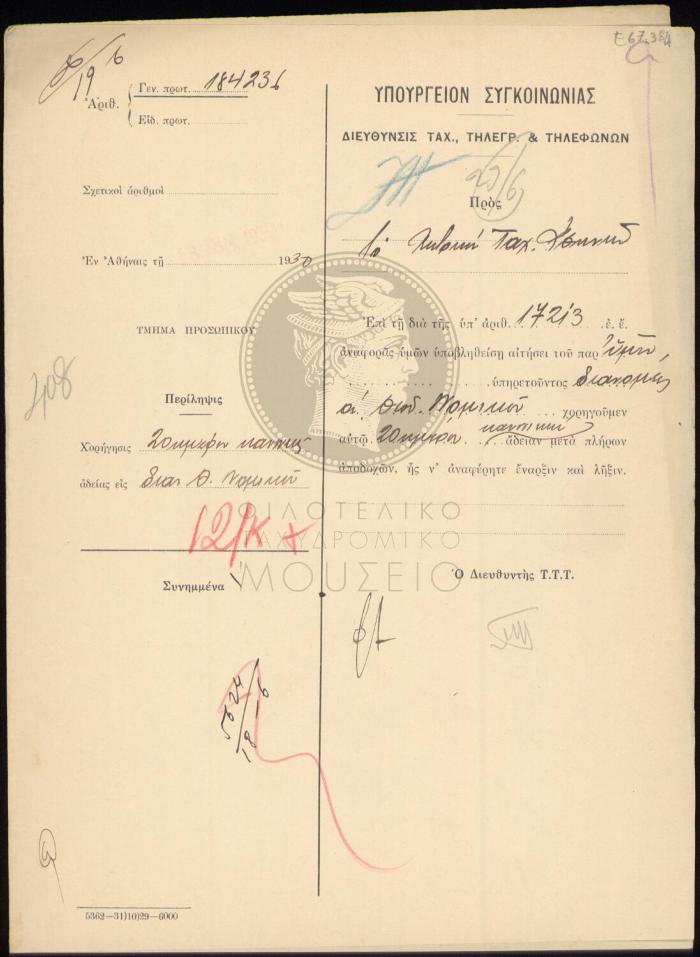 Ε67.384
19/6
Ἀριθ.
Γεν. πρωτ. 184236
Εἰδ. πρωτ.
Σχετικοὶ ἀριθμοὶ
Ἐν Ἀθήναις τῇ 1930
ΤΜΗΜΑ ΠΡΟΣΩΠΙΚΟΥ
408
Περίληψις
Χορήγησις 20ημέρου κανονικῆς
ἀδείας εἰς διαν. Θ. Νομικόν
12/Κ +
Συνημμένα 1
5624
18/6
5362—31)10)29—6000
ΥΠΟΥΡΓΕΙΟΝ ΣΥΓΚΟΙΝΩΝΙΑΣ
ΔΙΕΥΘΥΝΣΙΣ ΤΑΧ., ΤΗΛΕΓΡ. & ΤΗΛΕΦΩΝΩΝ
Πρὸς
Τὸ Ταχ.
Ἐπὶ τῇ διὰ τῆς ὑπ' ἀριθ. 17213 ἐ. ἔ.
ἀναφορᾶς ὑμῶν ὑποβληθείσῃ αἰτήσει τοῦ παρ' ὑμῖν
ὑπηρετοῦντος διανομέως
α' Θεοδ. Νομικοῦ χορηγοῦμεν
αὐτῷ 20ήμερον κανονικὴν ἄδειαν μετὰ πλήρων
ἀποδοχῶν, ἧς ν' ἀναφέρητε ἔναρξιν καὶ λῆξιν.
Ὁ Διευθυντὴς Τ.Τ.Τ.
ΦΙΛΟΤΕΛΙΚΟ
ΤΑΧΥΔΡΟΜΙΚΟ
ΜΟΥΣΕΙΟ